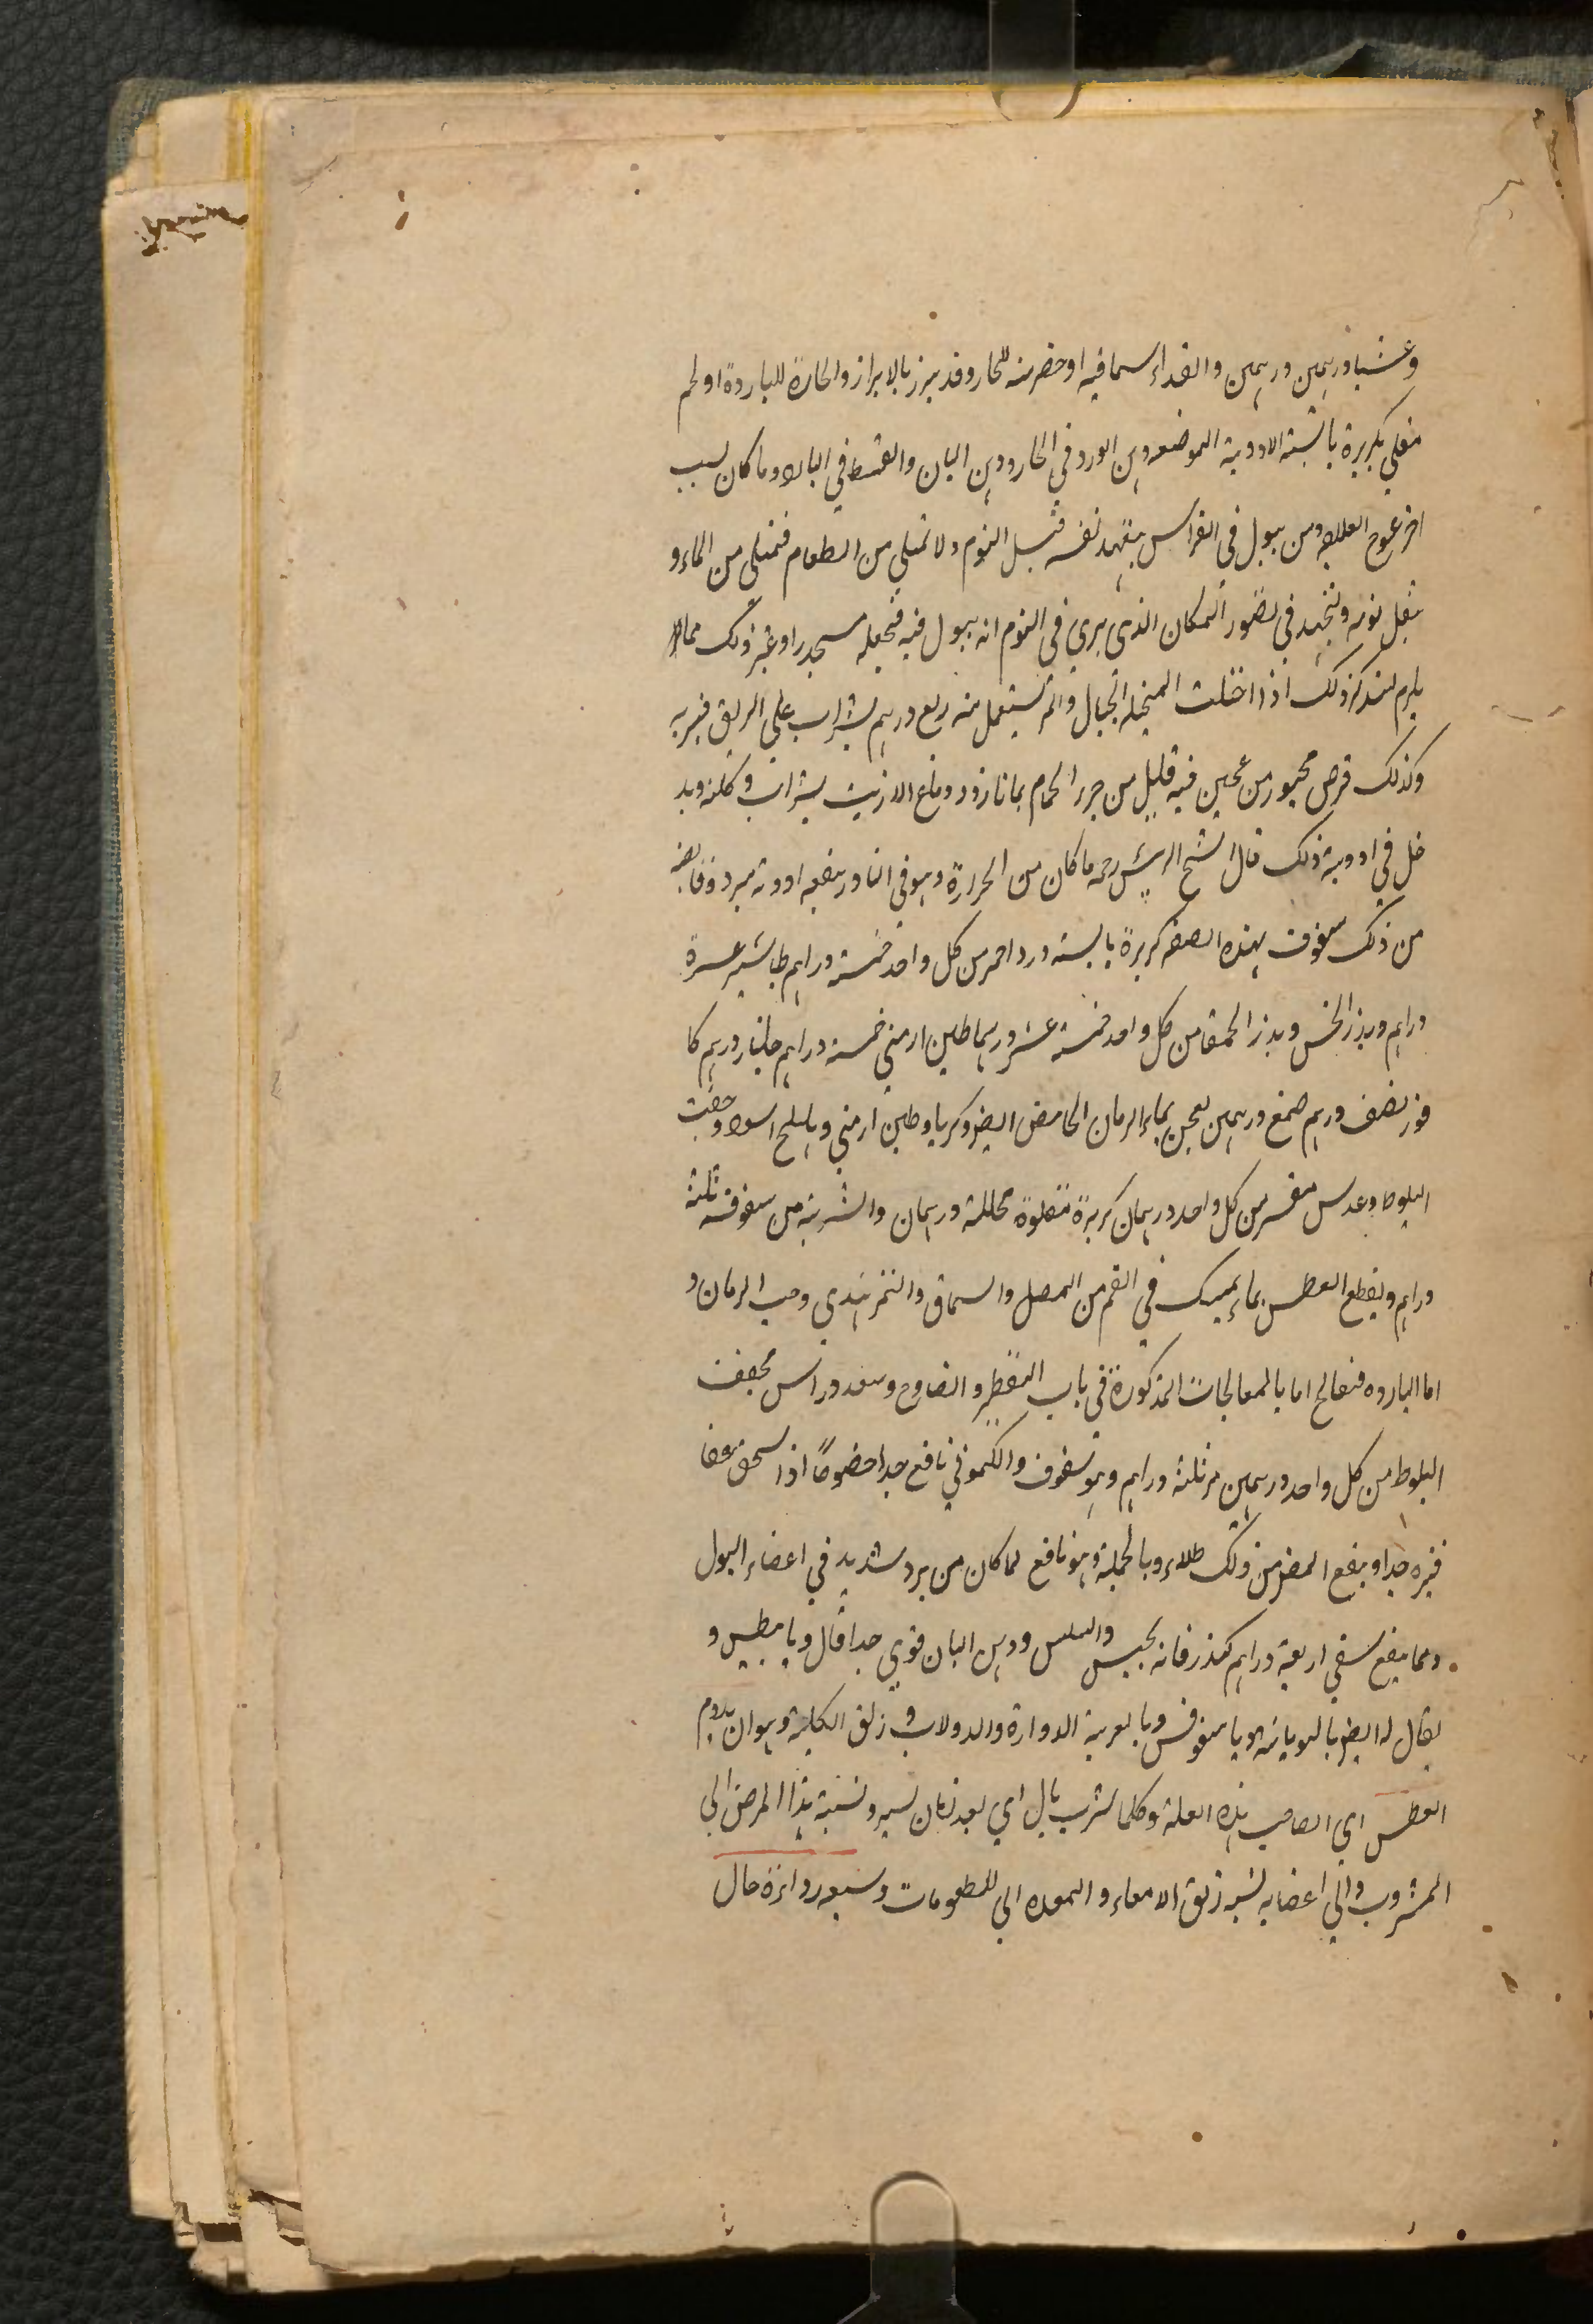 وعشيا درهمين درهمين والغداء سماقيه او حضرمنه للحار وقد يبرز بالابراز والحارة للباردة او لحم
مقلي بكربرة يابسة الادوية الموضعه دهن الورد في الحار ودهن البان والقسط في البارد وما كان لسبب
اخر عولج العلاج ومن يبول في الفراس يتعهد نفسه قبل النوم ولا تمتلي من الطعام فتمتلي من الماء و
يثقل نومه ويجتهد في تصور المكان الذي يري في النوم انه يبول فيه فتجعله مسجدا او غير ذلك مما لا
يلزم ليتذكر ذلك اذا اختلت المتخيله الخيال والمر يستعمل منه ربع درهم بشراب على الريق فيبريه
وكذلك قرص مخبوز من عجين فيه قليل من خرء الحمام بماء بارد ودماغ الارنب بشراب وكلته ويد
خل في ادوية ذلك قال الشيخ الرئيس رحمه ما كان من الحرارة وهو في النادر ينفعه ادوية مبردة قابضه
من ذلك سفوف بهذه الصفه كزبرة يابسة ورد احمر من كل واحد خمسة دراهم طباشير عشرة
دراهم وبزر الخس وبذر الحمقا من كل واحد خمسة عشر درهما طين ارمني خمسة دراهم جلنار درهم كا
فور نصف درهم صمغ درهمين يعجن بماء الرمان الحامض ايضر وكربا وطين ارمني وهليلج اسود وجفت
البلوط وعدس مقشر من كل واحد درهمان كزبرة مقلوة مخللة درهمان والشربة من سفوفه ثلثة
دراهم ويقطع العطس بماء يمسك في الفم من المصل والسماق والتمر هندي وحب الرمان و
اما البارده فتعالج اما بالمعالجات المذكورة في باب التقطير والفاوج وسعد وراس مجفف
البلوط من كل واحد درهمين مر ثلثة دراهم وهو سفوف والكموني نافع جدا خصوصًا اذا سحق عفا
قيره جدا وينفع المضر من ذلك طلاء وبالجملة وهو نافع لما كان من برد شديد في اعضاء البول
ومما ينفع سقي اربعة دراهم كندر فانه يحبس والسلس ودهن البان قوي جدا قال ديابيطس و
يقال له ايضر باليونانية ديا سقوفس وبالعربية الدوارة والدولاب و زلق الكلية وهو ان يدوم
العطس اي الصاحب هذه العلة وكلما شرب بال اي بعد زمان يسير ونسبة هذا المرض الي
المشروب والي اعضايه نسبة زلق الامعاء والمعده الي المطعومات وسببه رداءة حال